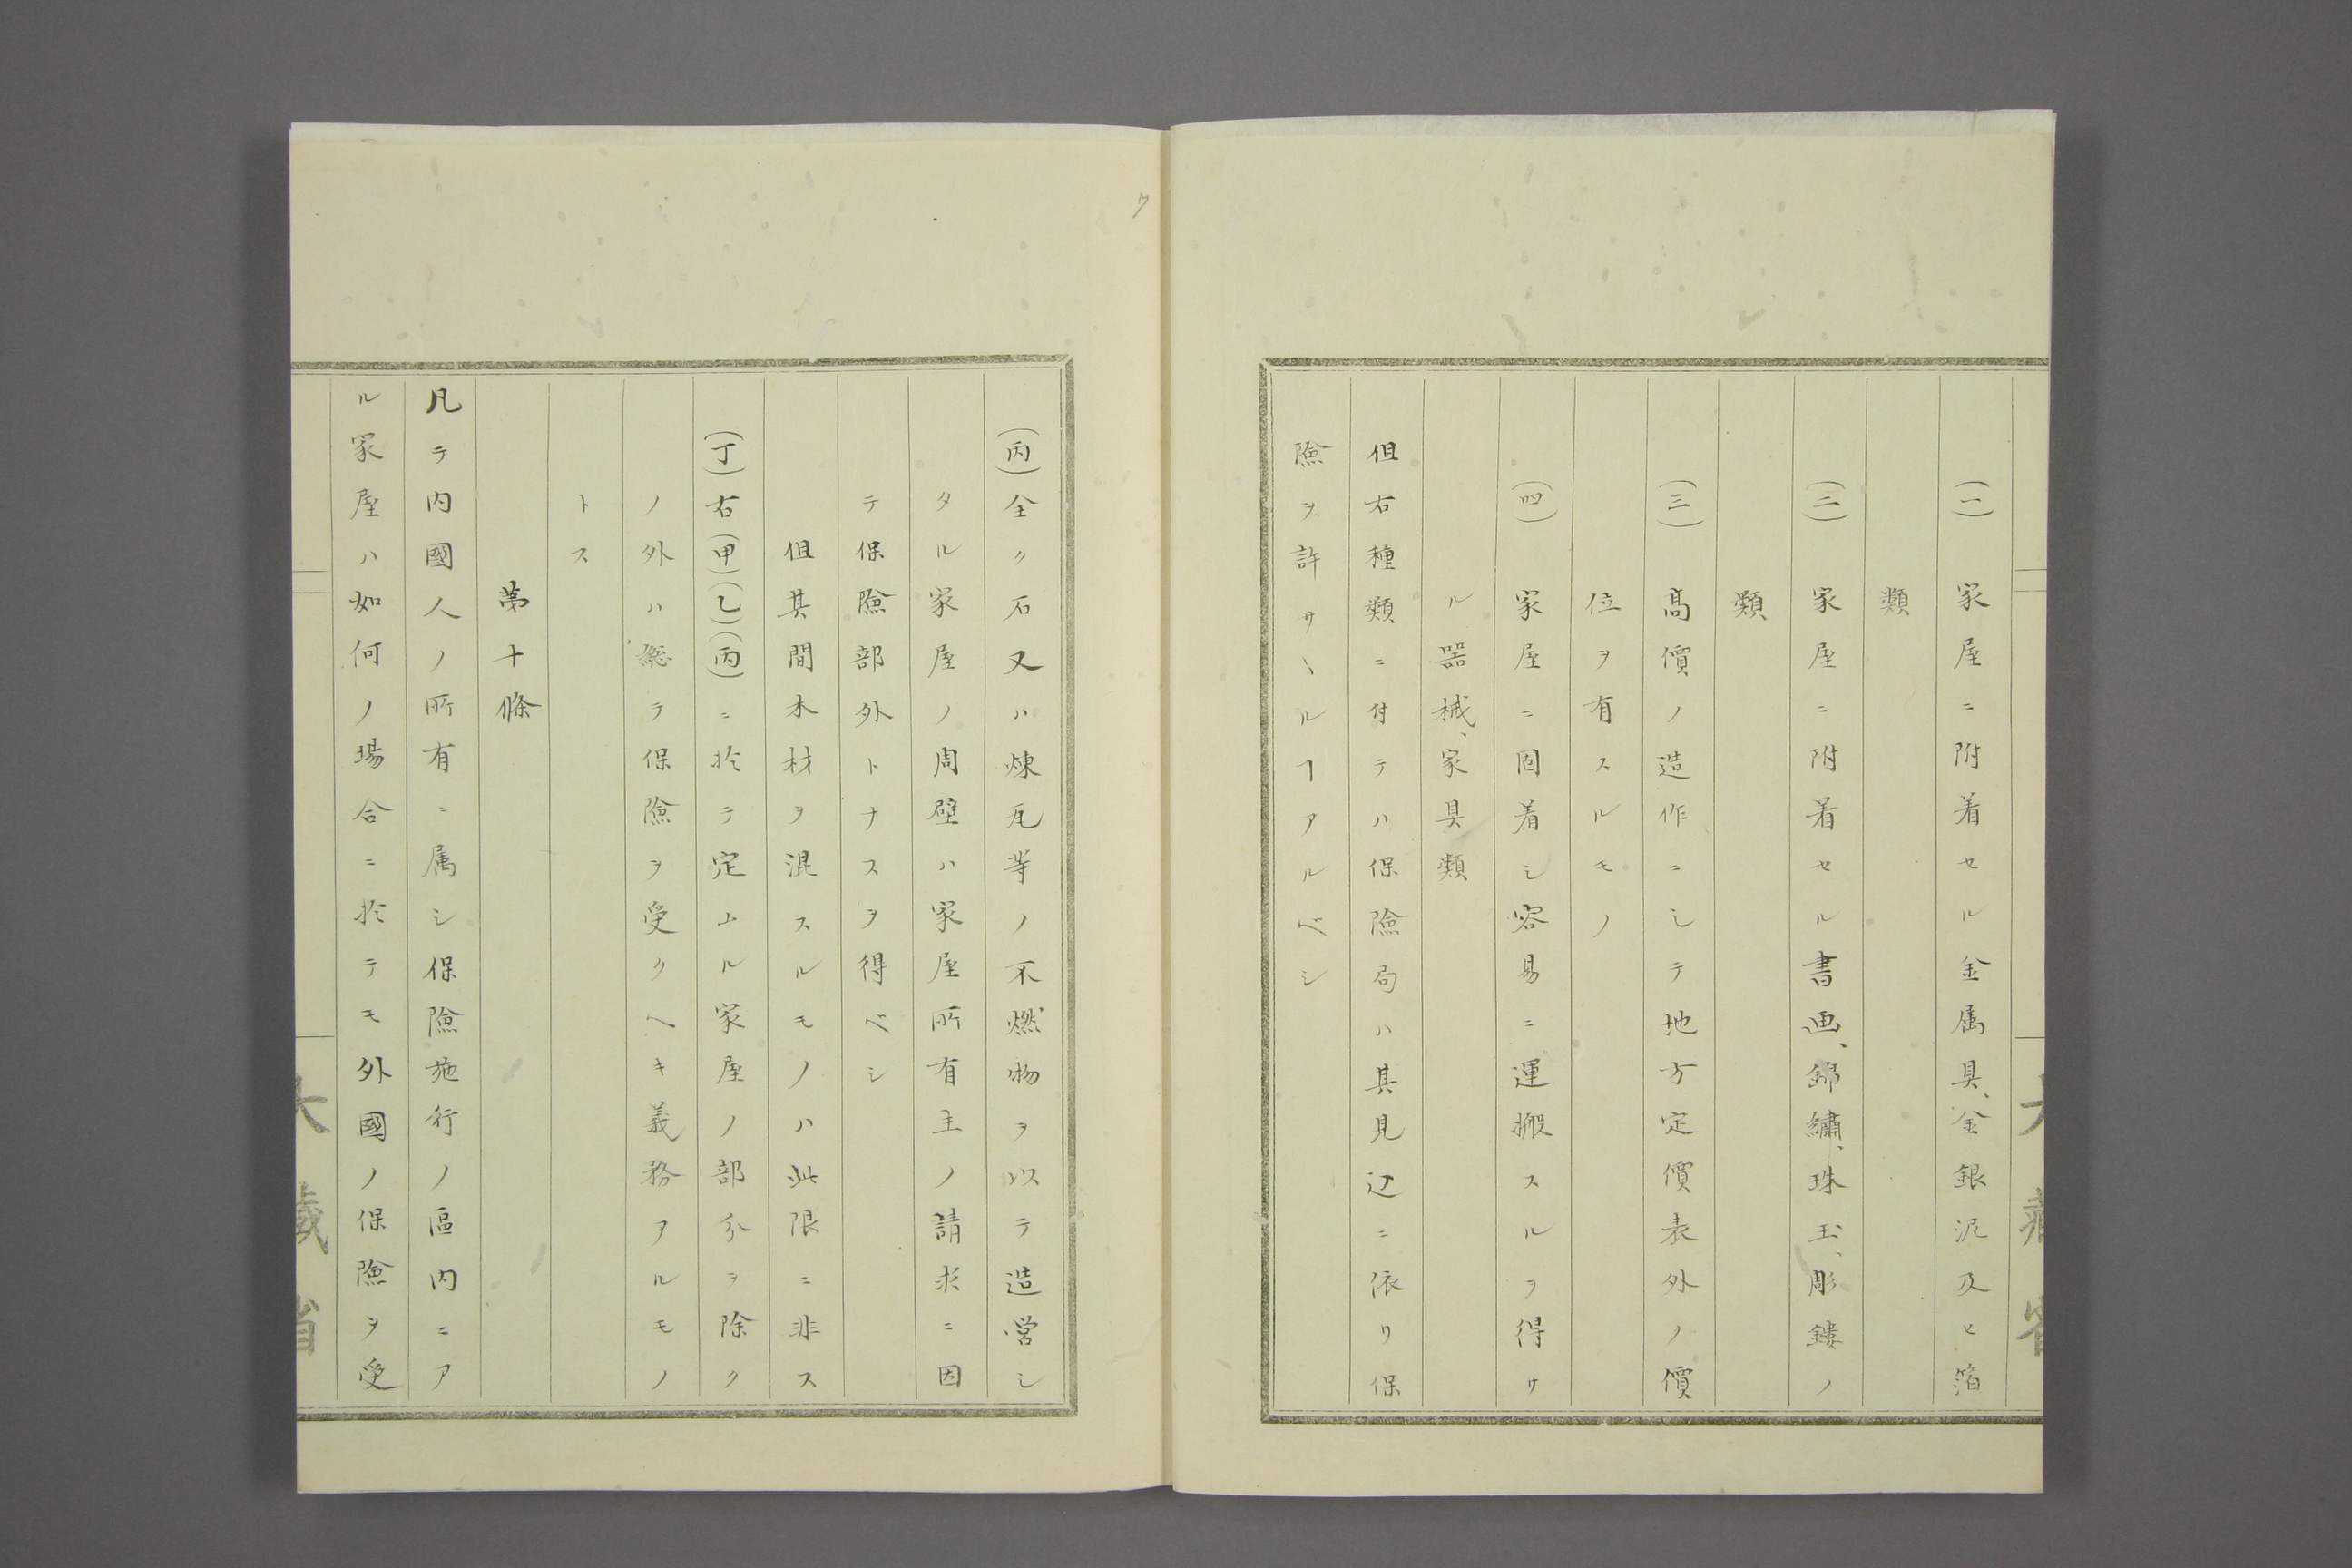 (一)家屋ニ附着セル金属具、金銀泥及ヒ箔
類
(二)家屋ニ附着セル書画、錦繡、珠玉、彫鏤ノ
類
(三)高價ノ造作ニシテ地方定價表外ノ價
位ヲ有スルモノ
(四)家屋ニ固着シ容易ニ運搬スルヲ得サ
ル器械、家具類
但右種類ニ付テハ保險局ハ其見込ニ依リ保
險ヲ許サヽルヿアルベシ
(丙)全ク石又ハ煉瓦等ノ不燃物ヲ以テ造営シ
タル家屋ノ周壁ハ家屋所有主ノ請求ニ因
テ保險部外トナスヲ得ベシ
但其間木材ヲ混スルモノハ此限ニ非ス
(丁)右(甲)(乙)(丙)ニ於テ定ムル家屋ノ部分ヲ除ク
ノ外ハ総テ保險ヲ受クヘキ義務アルモノ
トス
第十條
凡テ内國人ノ所有ニ属シ保險施行ノ區内ニア
ル家屋ハ如何ノ場合ニ於テモ外國ノ保險ヲ受
大藏省